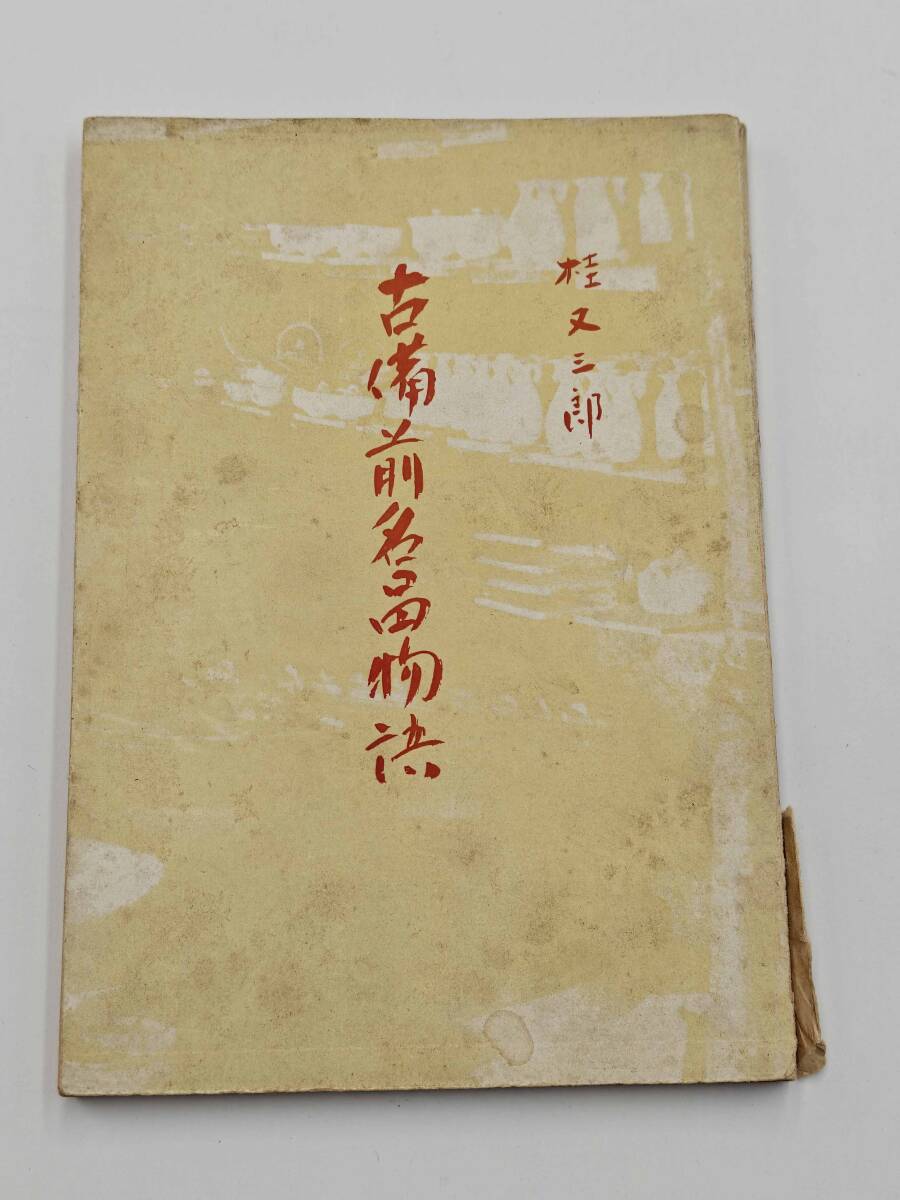 桂又三郎
古備前名品物語